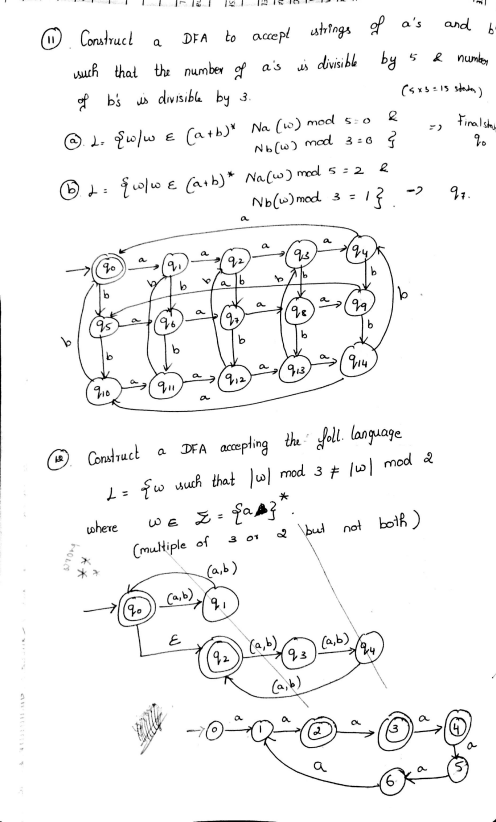 11. Construct a DFA to accept strings of a's and b
such that the number of a's is divisible by 5 & number
of b's is divisible by 3. (5x3=15 states)
(a). L = {w/w ε (a+b)* Na(w) mod 5=0 & => Final sta
Nb(w) mod 3=0 } q0
(b) L = {w/w ε (a+b)* Na(w) mod 5=2 &
Nb(w) mod 3 = 1}. -> q7.
a
q0 a q1 a q2 a q3 a q4
b b b b b a b b b
q5 a q6 a q7 a q8 a q9 b
b b b b b b
q10 a q11 a q12 a q13 a q14
a
12. Construct a DFA accepting the foll. language
L = {w such that |w| mod 3 ≠ |w| mod 2
where w ε Σ = {a}*.
(multiple of 3 or 2 but not both)
(a,b)
q0 (a,b) q1
ε
q2 (a,b) q3 (a,b) q4
(a,b)
0 a 1 a 2 a 3 a 4
a a
6 a 5